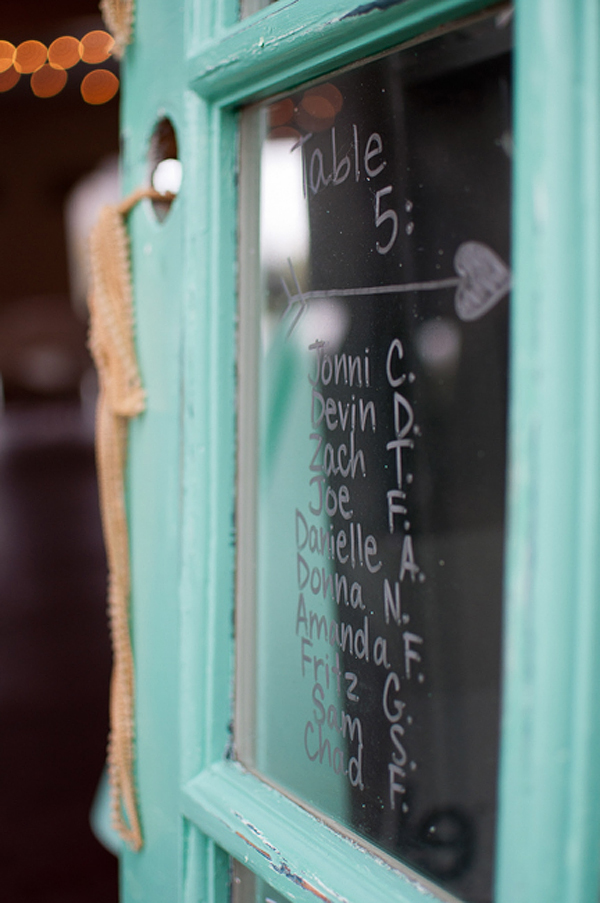 Table
5:
Jonni C.
Devin D.
Zach T.
Joe F.
Danielle A.
Donna N.
Amanda F.
Fritz G.
Sam S.
Chad F.